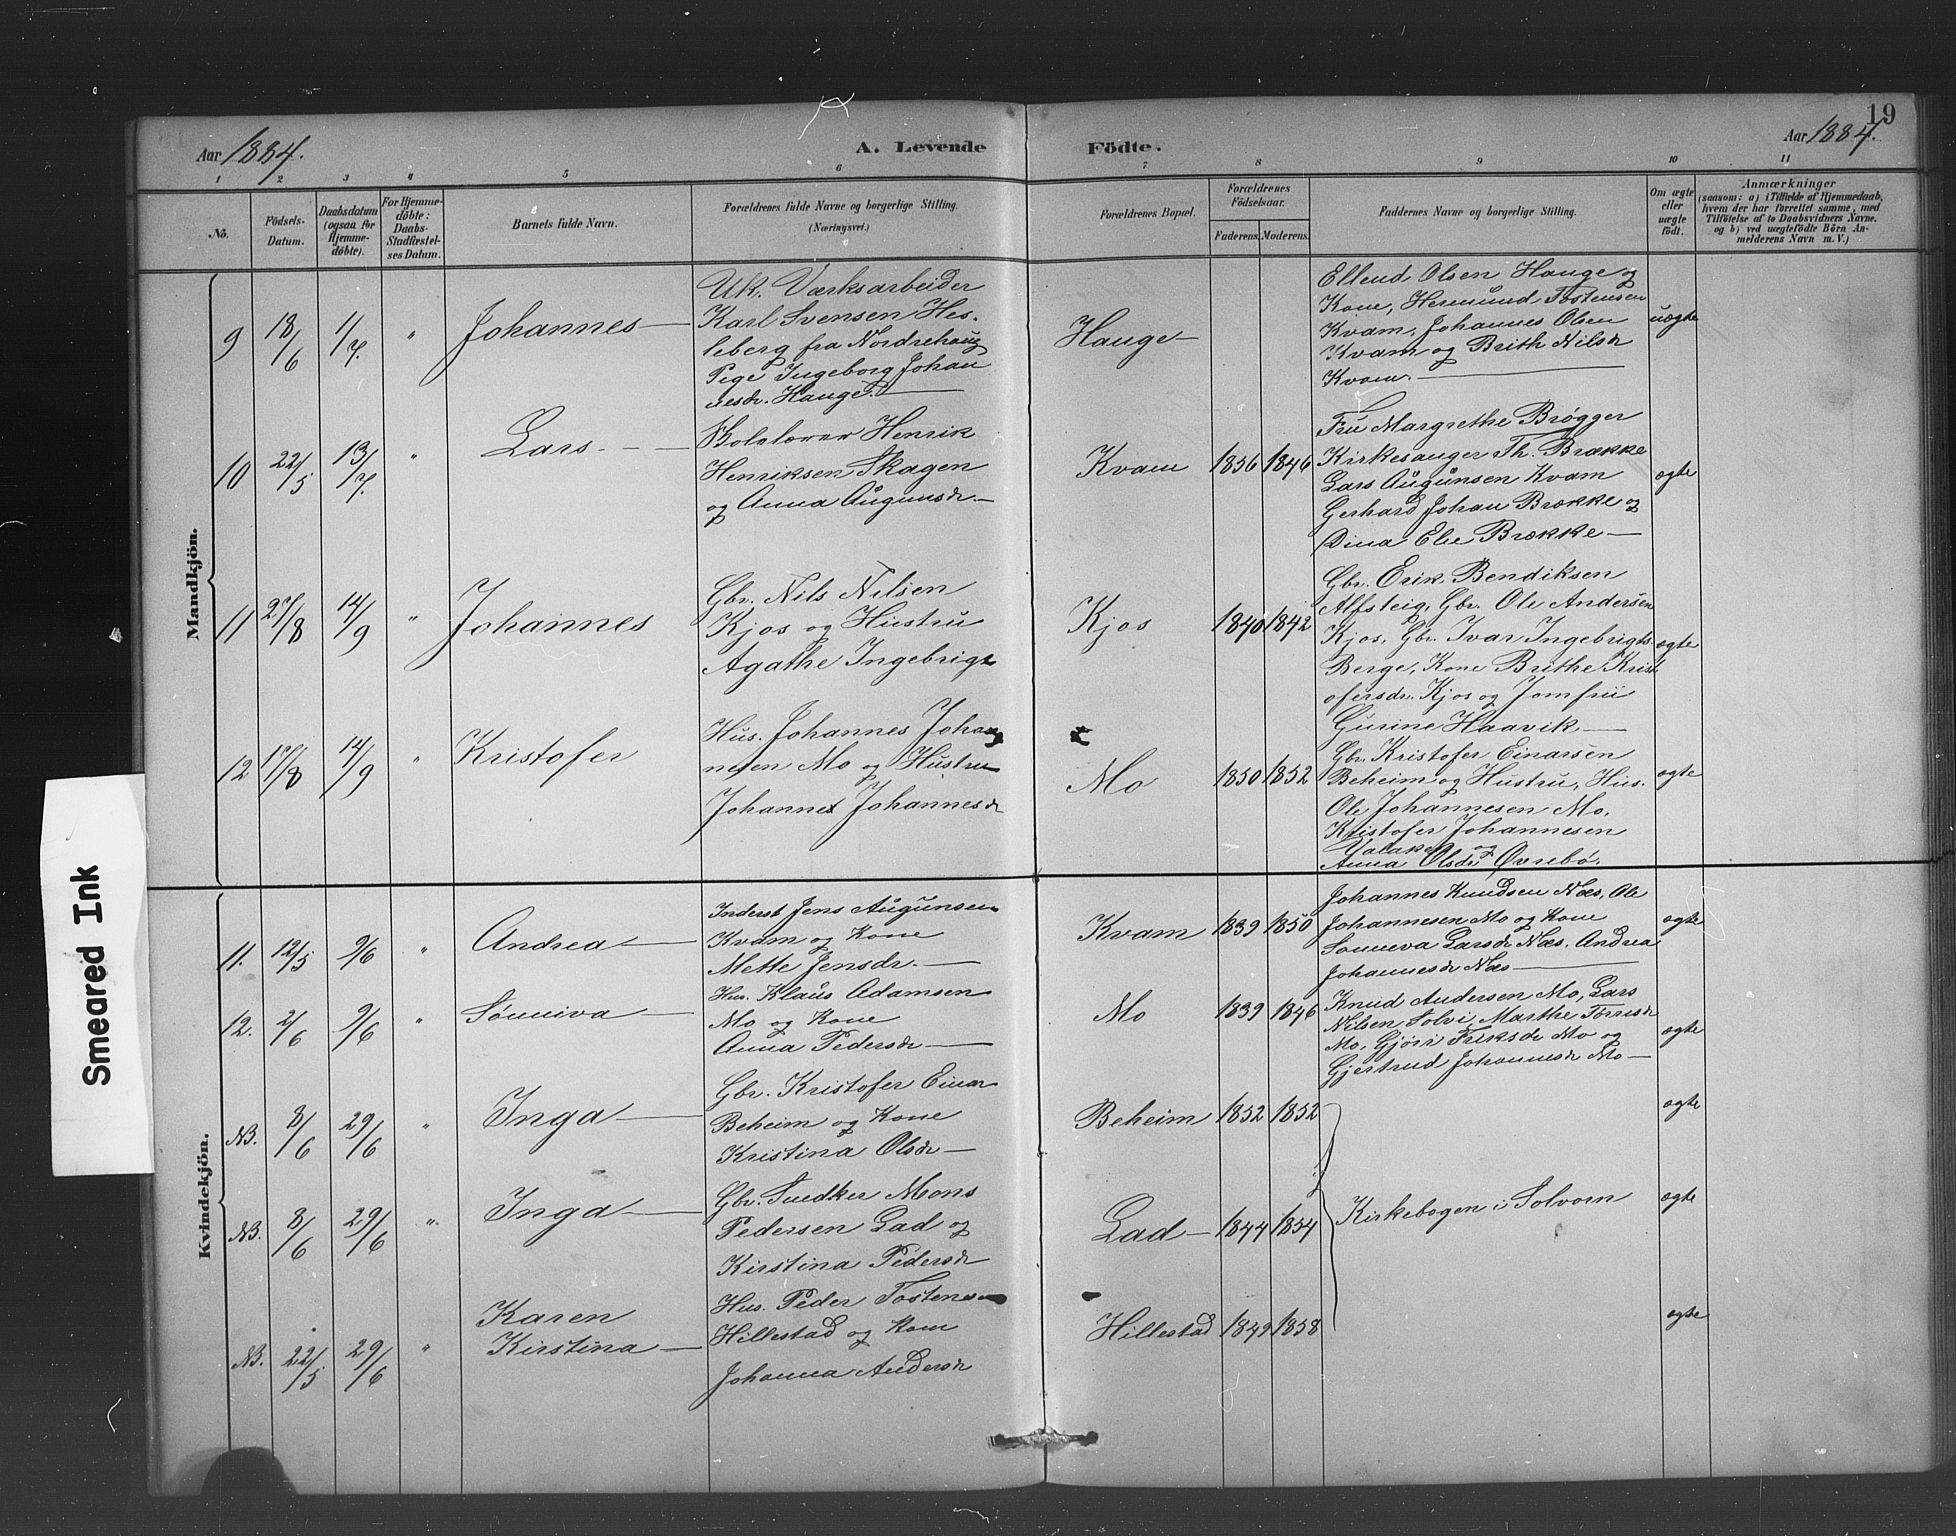 19
Aar 1884.
A. Levende
Födte.
Aar 1884.
1 2 3 4 5 6 7 8 9 10 11
No.
Födsels-
Datum.
Daabsdatum
(ogsaa for
Hjemme-
döbte).
For Hjemme-
döbte:
Daabs-
Stadfæstel-
ses Datum.
Barnets fulde Navn.
Forældrenes fulde Navne og borgerlige Stilling.
(Næringsvei.)
Forældrenes Bopæl.
Forældrenes
Födselsaar.
Faderens. Moderens.
Faddernes Navne og borgerlige Stilling.
Om ægte
eller
uægte
födt.
Anmærkninger
(saasom: a) i Tilfælde af Hjemmedaab,
hvem der har forrettet samme, med
Tilföielse af to Daabsvidners Navne.
og b) ved uægtefödte Börn An-
melderens Navn m. V.)
Mandkjön.
9 18/6 1/7. " Johannes—
Uk. Værksarbeider
Karl Svensen Hes-
leberg fra Nordrehoug
Pige Ingeborg Johan
nesdr. Hauge.—
Hauge—
Ellend Olsen Hauge og
Kone, Hermund Tostensen
Kvam, Johannes Olsen
Kvam og Brith Nilsdr
Kvam.—
uægte
10 22/5 13/7. " Lars—
Skolelærer Henrik
Henriksen Skagen
og Anna Augunsdr.—
Kvam 1856 1846
Fru Margrethe Brøgger
Kirkesanger Th. Brække
Lars Augunsen Kvam
Gerhard Johan Brække og
Dina Elie Brække—
ægte
11 27/8 14/9 " Johannes
Gbr. Nils Nilsen
Kjos og Hustru
Agathe Ingebrigs
Kjos 1840 1842
Gbr. Erik Bendiksen
Alfsteig, Gbr. Ole Andersen
Kjos, Gbr. Ivar Ingebrigts
Berge, Kone Brithe Krist
ofersdr. Kjos og Jomfru
Gurine Haavik—
ægte
12 17/8 14/9 " Kristofer
Hus. Johannes Johan
nesen Mo og Hustru
Johanne Johannesdr
Mo 1850 1852
Gbr. Kristofer Einarsen
Beheim og Hustru, Hus.
Ole Johannesen Mo.
Kristofer Johannesen
og
Anna Olsdr Øvrebø.
ægte
Kvindekjön.
11. 12/5 9/6 " Andrea—
Inderst Jens Augunsen
Kvam og Kone
Mette Jensdr.—
Kvam 1839 1850
Johannes Knudsen Næs, Ole
Johannesen Mo og Kone
Sønneva Larsdr Næs, Andrea
Johannesdr Næs—
ægte
12. 2/6 9/6 " Sønniva—
Hus. Klaus Adamsen
Mo og Kone
Anna Pedersdr—
Mo 1839 1846
Knud Andersen Mo, Lars
Nilsen Solvi, Marthe Torrisdr
Mo, Gjøri Eriksdr Mo og
Gjertrud Johannesdr Mo—
ægte
NB. 8/6 29/6 " Inga—
Gbr. Kristofer Einar
Beheim og Kone
Kristina Olsdr—
Beheim 1852 1852
ægte
NB. 8/6 29/6 " Inga—
Gbr. Sjudker Mons
Pedersen Lad og
Kirstina Pedersdr
Lad— 1844 1854
Kirkebogen i Solvorn
ægte
NB. 22/5 29/6 " Karen
Kirstina—
Hus. Peder Tostensen
Hillestad og Kone
Johanna Andersdr
Hillestad 1849 1858
ægte
Smeared Ink